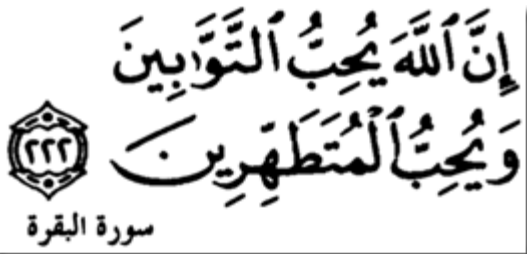 إِنَّ ٱللَّهَ يُحِبُّ ٱلتَّوَّٰبِينَ
وَيُحِبُّ ٱلْمُتَطَهِّرِينَ ٢٢٢
سورة البقرة